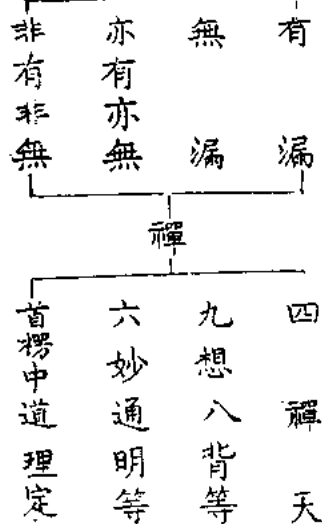 有漏
無漏
亦有亦無
非有非無
禪
四禪天
九想八背等
六妙通明等
首楞中道理定